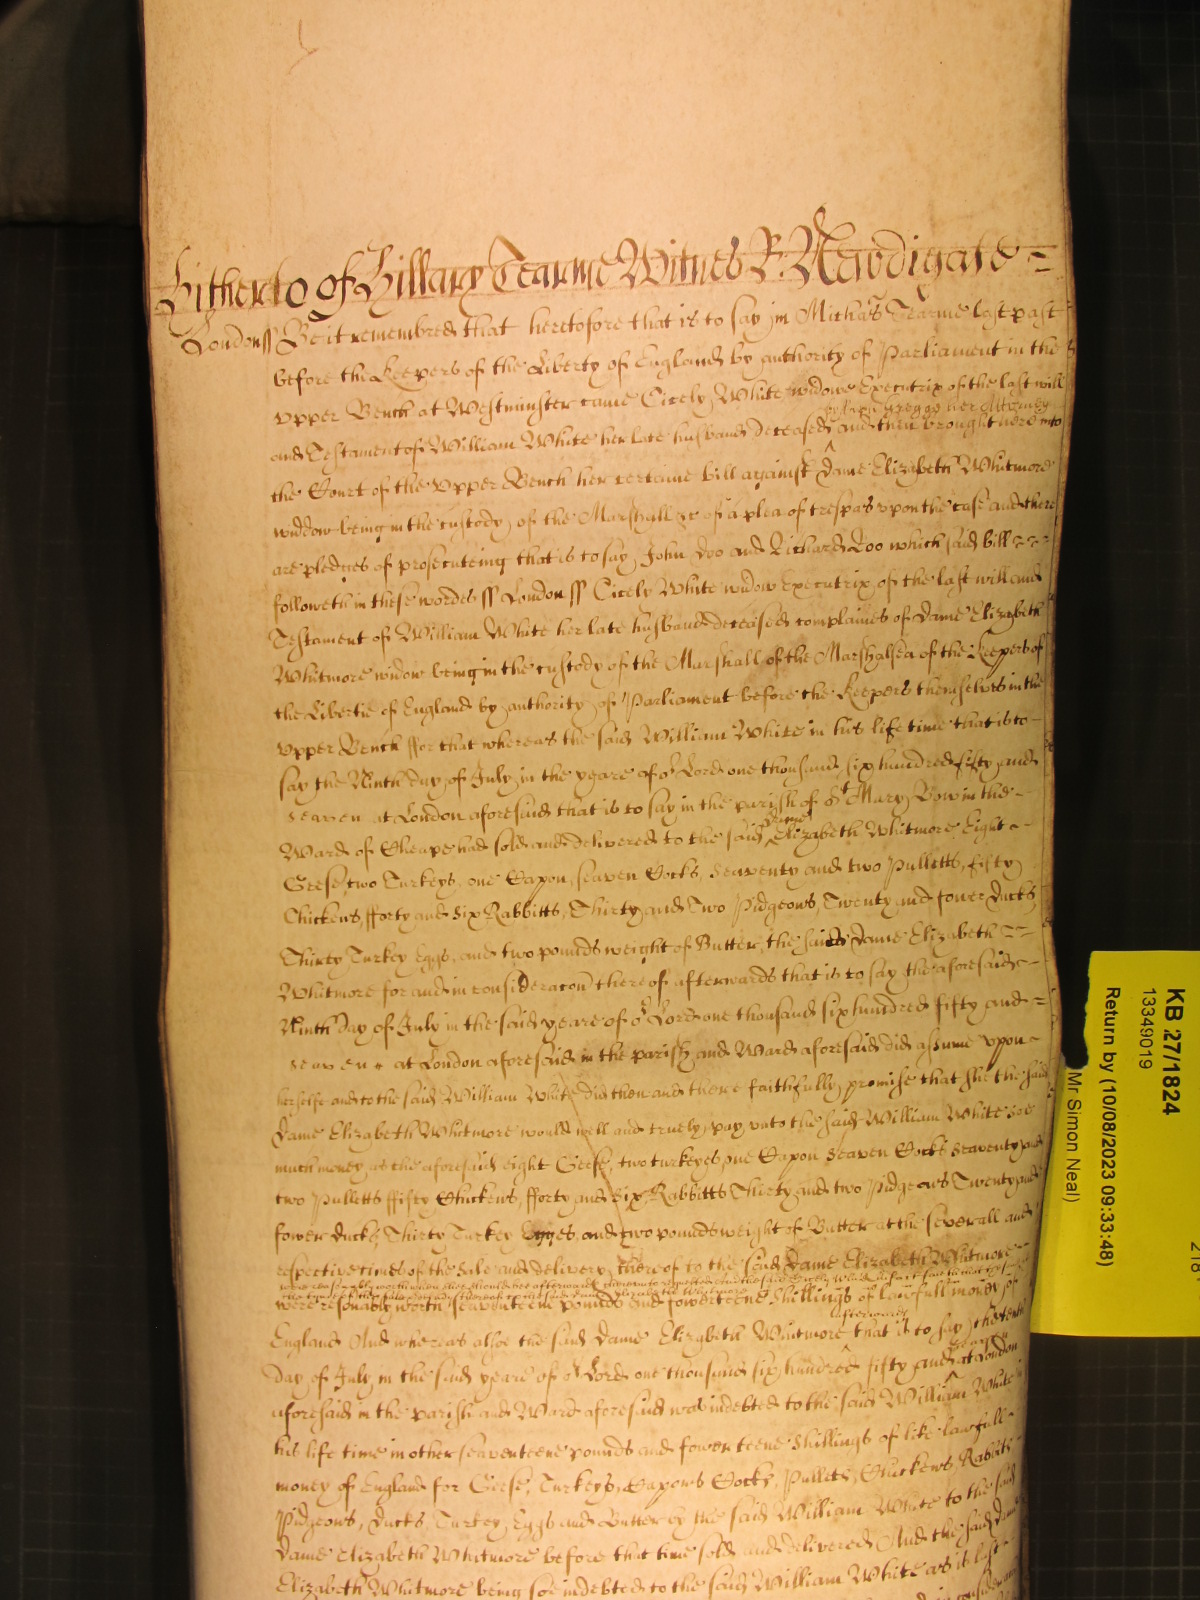 Hitherto of Hillary Tearme Witnes R: Newdigate
London ss Be it remembred that heretofore that is to say in Michas Tearme last past
before the Keepers of the Liberty of England by authority of Parliament in the
Upper Bench at Westminster came Cicely White widowe Executrix of the last will
by Gregge her Attorney
and Testament of William White her late husband deceased and then brought here into
the Court of the Upper Bench her certaine bill against Dame Elizabeth Whitmore
widdow being in the custody of the Marshall &c of a plea of trespas upon the case and there
are pledges of prosecuteing that is to say John Doo and Richard Roo which said bill
followeth in these wordes ss London ss Cicely White widow Executrix of the last will and
Testament of William White her late husband deceased complaines of Dame Elizabeth
Whitmore widow being in the custody of the Marshall of the Marshalsea of the Keepers of
the Libertie of England by authority of Parliament before the Keepers themselves in the
Upper Bench ffor that whereas the said William White in his life time that is to
say the Ninth day of July in the yeare of or Lord one thousand six hundred fifty and
seaven at London aforesaid that is to say in the parish of St Mary Bow in the
Ward of Cheape had sold and delivered to the said Dame Elizabeth Whitmore Eight
Geese, two Turkeys, one Capon, seaven Cocks, Seaventy and two Pulletts, fifty
Chickens, fforty and Six Rabbitts, Thirty and Two Pidgeons, Twenty and fower Ducks
Thirty Turkey Eggs, and two pounds weight of Butter, the said Dame Elizabeth
Whitmore for and in consideracon thereof afterwards that is to say the aforesaid
Ninth day of July in the said yeare of or Lord one thousand six hundred fifty and
seaven at London aforesaid in the parish and Ward aforesaid did assume upon
herselfe and to the said William White did then and there faithfully promise that she the said
Dame Elizabeth Whitmore would well and truely pay unto the said William White soe
much money as the aforesaid eight Geese, two turkeyes one Capon Seaven Cocks Seaventy and
two Pulletts ffifty Chickens, fforty and Six Rabbitts Thirty and two Pidgeons Twenty and
fower ducks Thirty Turkey Eggs, and two pounds weight of Butter at the severall and
respective times of the Sale and delivery thereof to the said Dame Elizabeth Whitmore
were reasonably worth when she should bee afterwards thereunto requested And the said Cicely White
were resonably worth seaventeene pounds and fowerteene Shillings of lawfull money of
England And whereas alsoe the said Dame Elizabeth Whitmore afterwards that is to say the tenth
day of July in the said yeare of or Lord one thousand six hundred fifty and seaven at London
aforesaid in the parish and Ward aforesaid was indebted to the said William White in
his life time in other seaventeene pounds and fowerteene Shillings of like lawfull
money of England for Geese, Turkeys, Capons Cocks, Pulletts, Chickens, Rabbitts
Pidgeons, Ducks, Turkey Eggs and Butter by the said William White to the said
Dame Elizabeth Whitmore before that time sold and delivered And the said Dame
Elizabeth Whitmore being soe indebted to the said William White as is last
KB 27/1824
13349019
Return by (10/08/2023 09:33:48)
Mr Simon Neal)